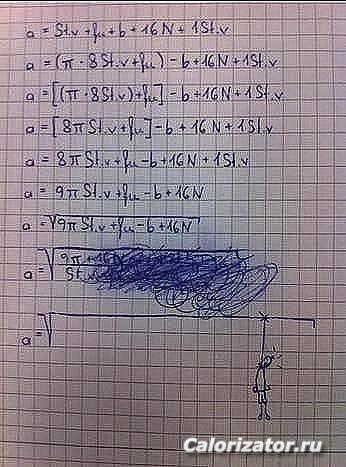 a = St.v + fμ + b + 16N + 1St.v
a = (π · 8St.v + fμ) - b + 16N + 1St.v
a = [(π · 8St.v) + fμ] - b + 16N + 1St.v
a = [8πSt.v + fμ] - b + 16N + 1St.v
a = 8πSt.v + fμ - b + 16N + 1St.v
a = 9πSt.v + fμ - b + 16N
a = √9πSt.v + fμ - b + 16N
a = √9π + 16N
St.v
a = √
Calorizator.ru